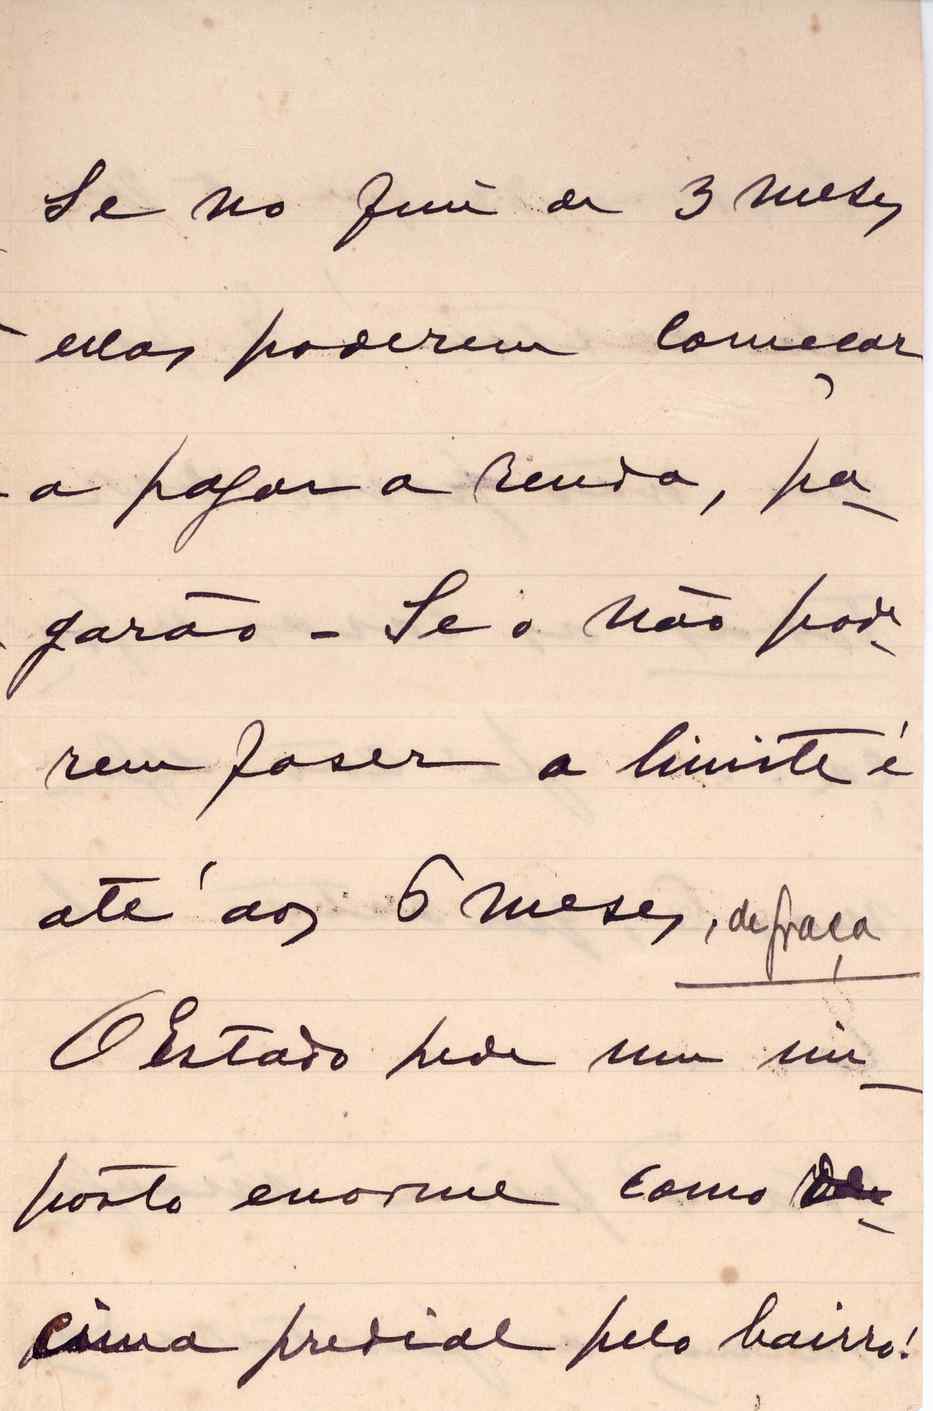 Se no fim de 3 meses
ellas poderem começar
a pagar a renda, pa-
garão - Se o não pode-
rem faser o limite é
até aos 6 meses, de graça
O Estado pede um im-
posto enorme como de-
cima predial pelo bairro!